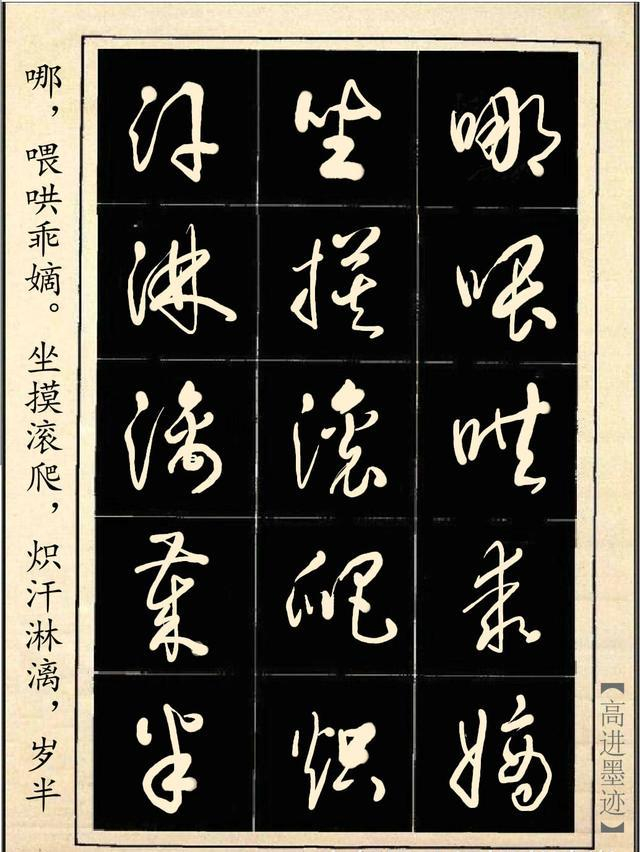 哪喂哄乖嫡
坐摸滚爬炽
汗淋漓岁半
哪，喂哄乖嫡。坐摸滚爬，炽汗淋漓，岁半
【高进墨迹】